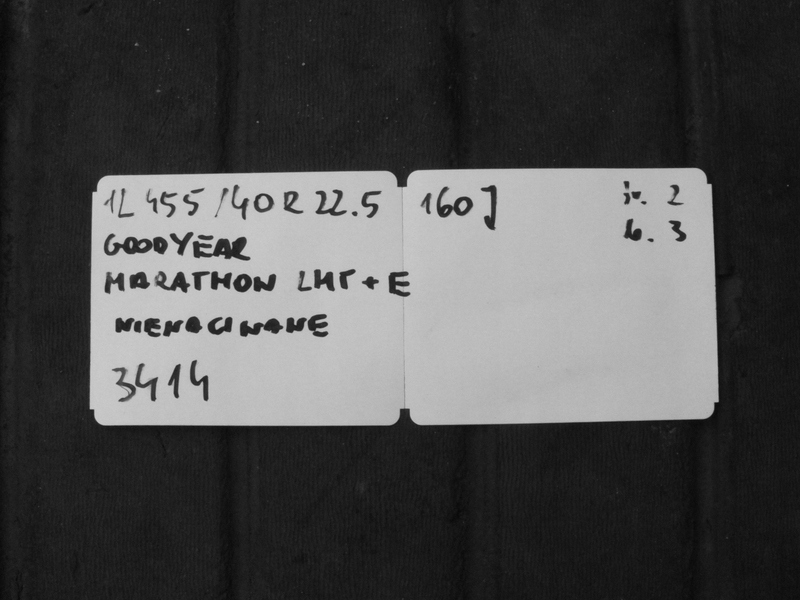 1L 455/40 R 22.5 160J
GOODYEAR
MARATHON LHT + E
NIENACINANE
3414
k. 2
b. 3